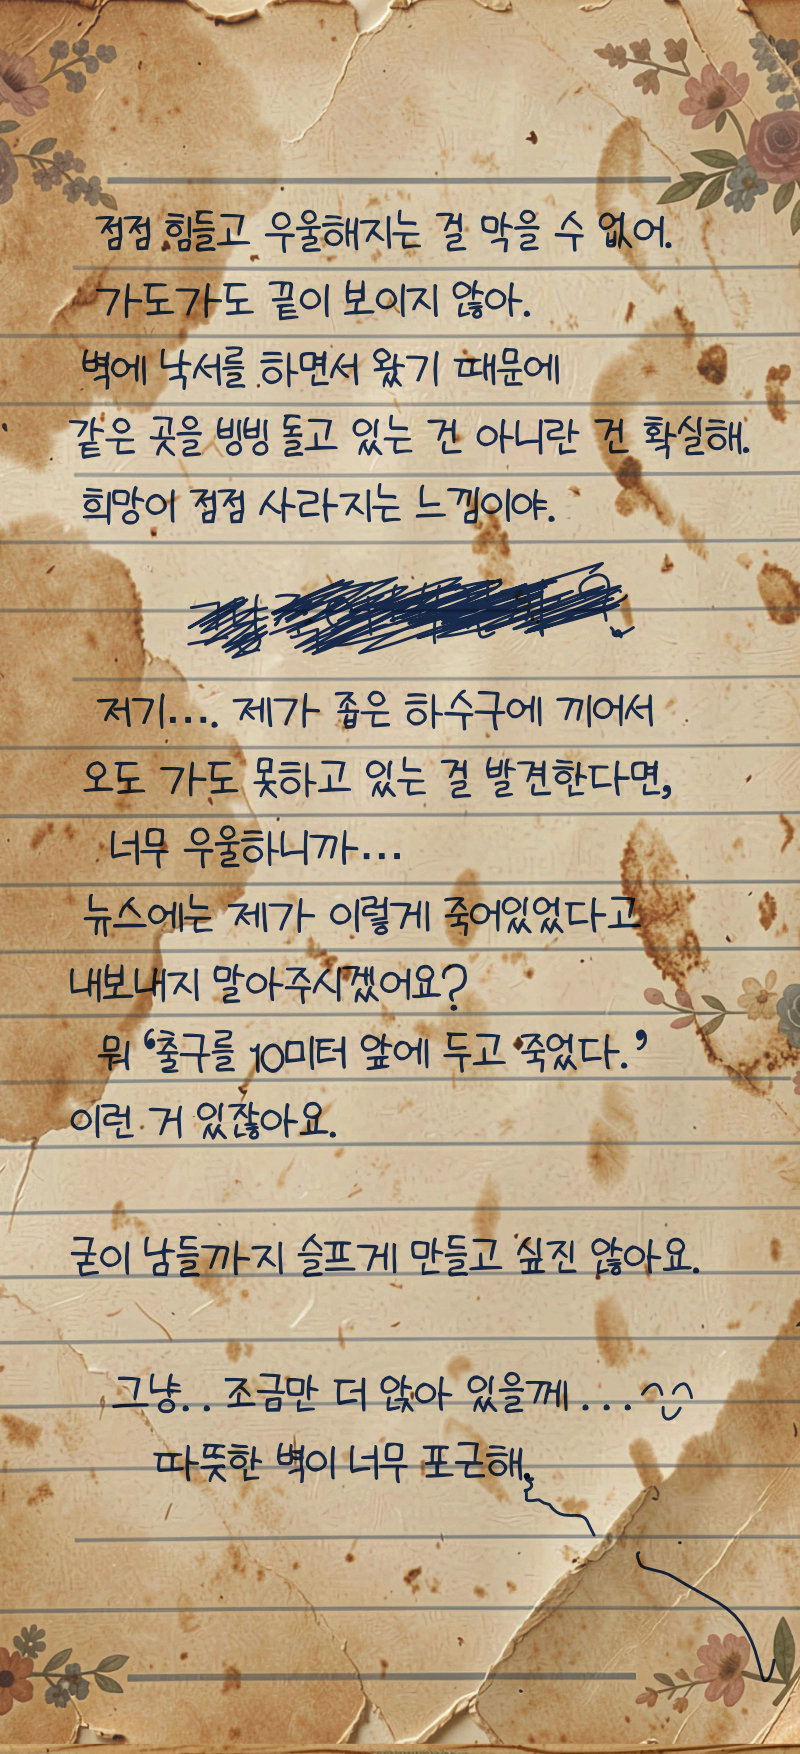 점점 힘들고 우울해지는 걸 막을 수 없어.
가도가도 끝이 보이지 않아.
벽에 낙서를 하면서 왔기 때문에
같은 곳을 빙빙 돌고 있는 건 아니란 건 확실해.
희망이 점점 사라지는 느낌이야.
저기.... 제가 좁은 하수구에 끼어서
오도 가도 못하고 있는 걸 발견한다면,
너무 우울하니까...
뉴스에는 제가 이렇게 죽어있었다고
내보내지 말아주시겠어요?
뭐 ‘출구를 10미터 앞에 두고 죽었다.’
이런 거 있잖아요.
굳이 남들까지 슬프게 만들고 싶진 않아요.
그냥.. 조금만 더 앉아 있을께...^^
따뜻한 벽이 너무 포근해.